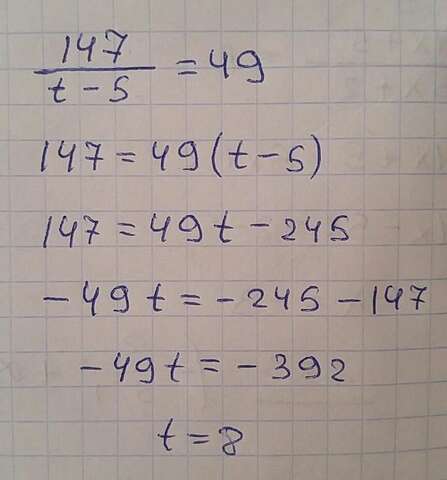 147/(t - 5) = 49
147 = 49(t - 5)
147 = 49t - 245
- 49t = - 245 - 147
- 49t = - 392
t = 8